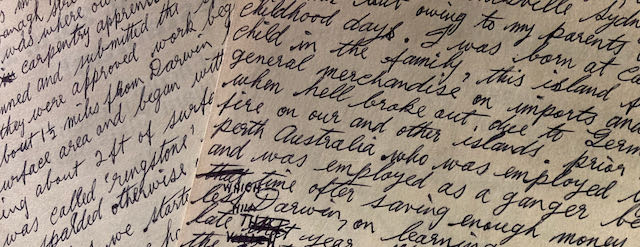 carpentry appren
nned and submitted the
they were approved work beg
bout 1½ miles from Darwin
urface area and began with
ing about 2ft of surfa
was called 'ringstone',
spalded otherwise
we starte
owing to my parents
childhood days. I was born at
child in the family, this island
general merchandise on imports and
when hell broke out, due to Germ
fire on our and other islands. prior
Perth Australia who was employed
and was employed as a ganger be
time after saving enough money
WHICH
Darwin, on learning
late year
the